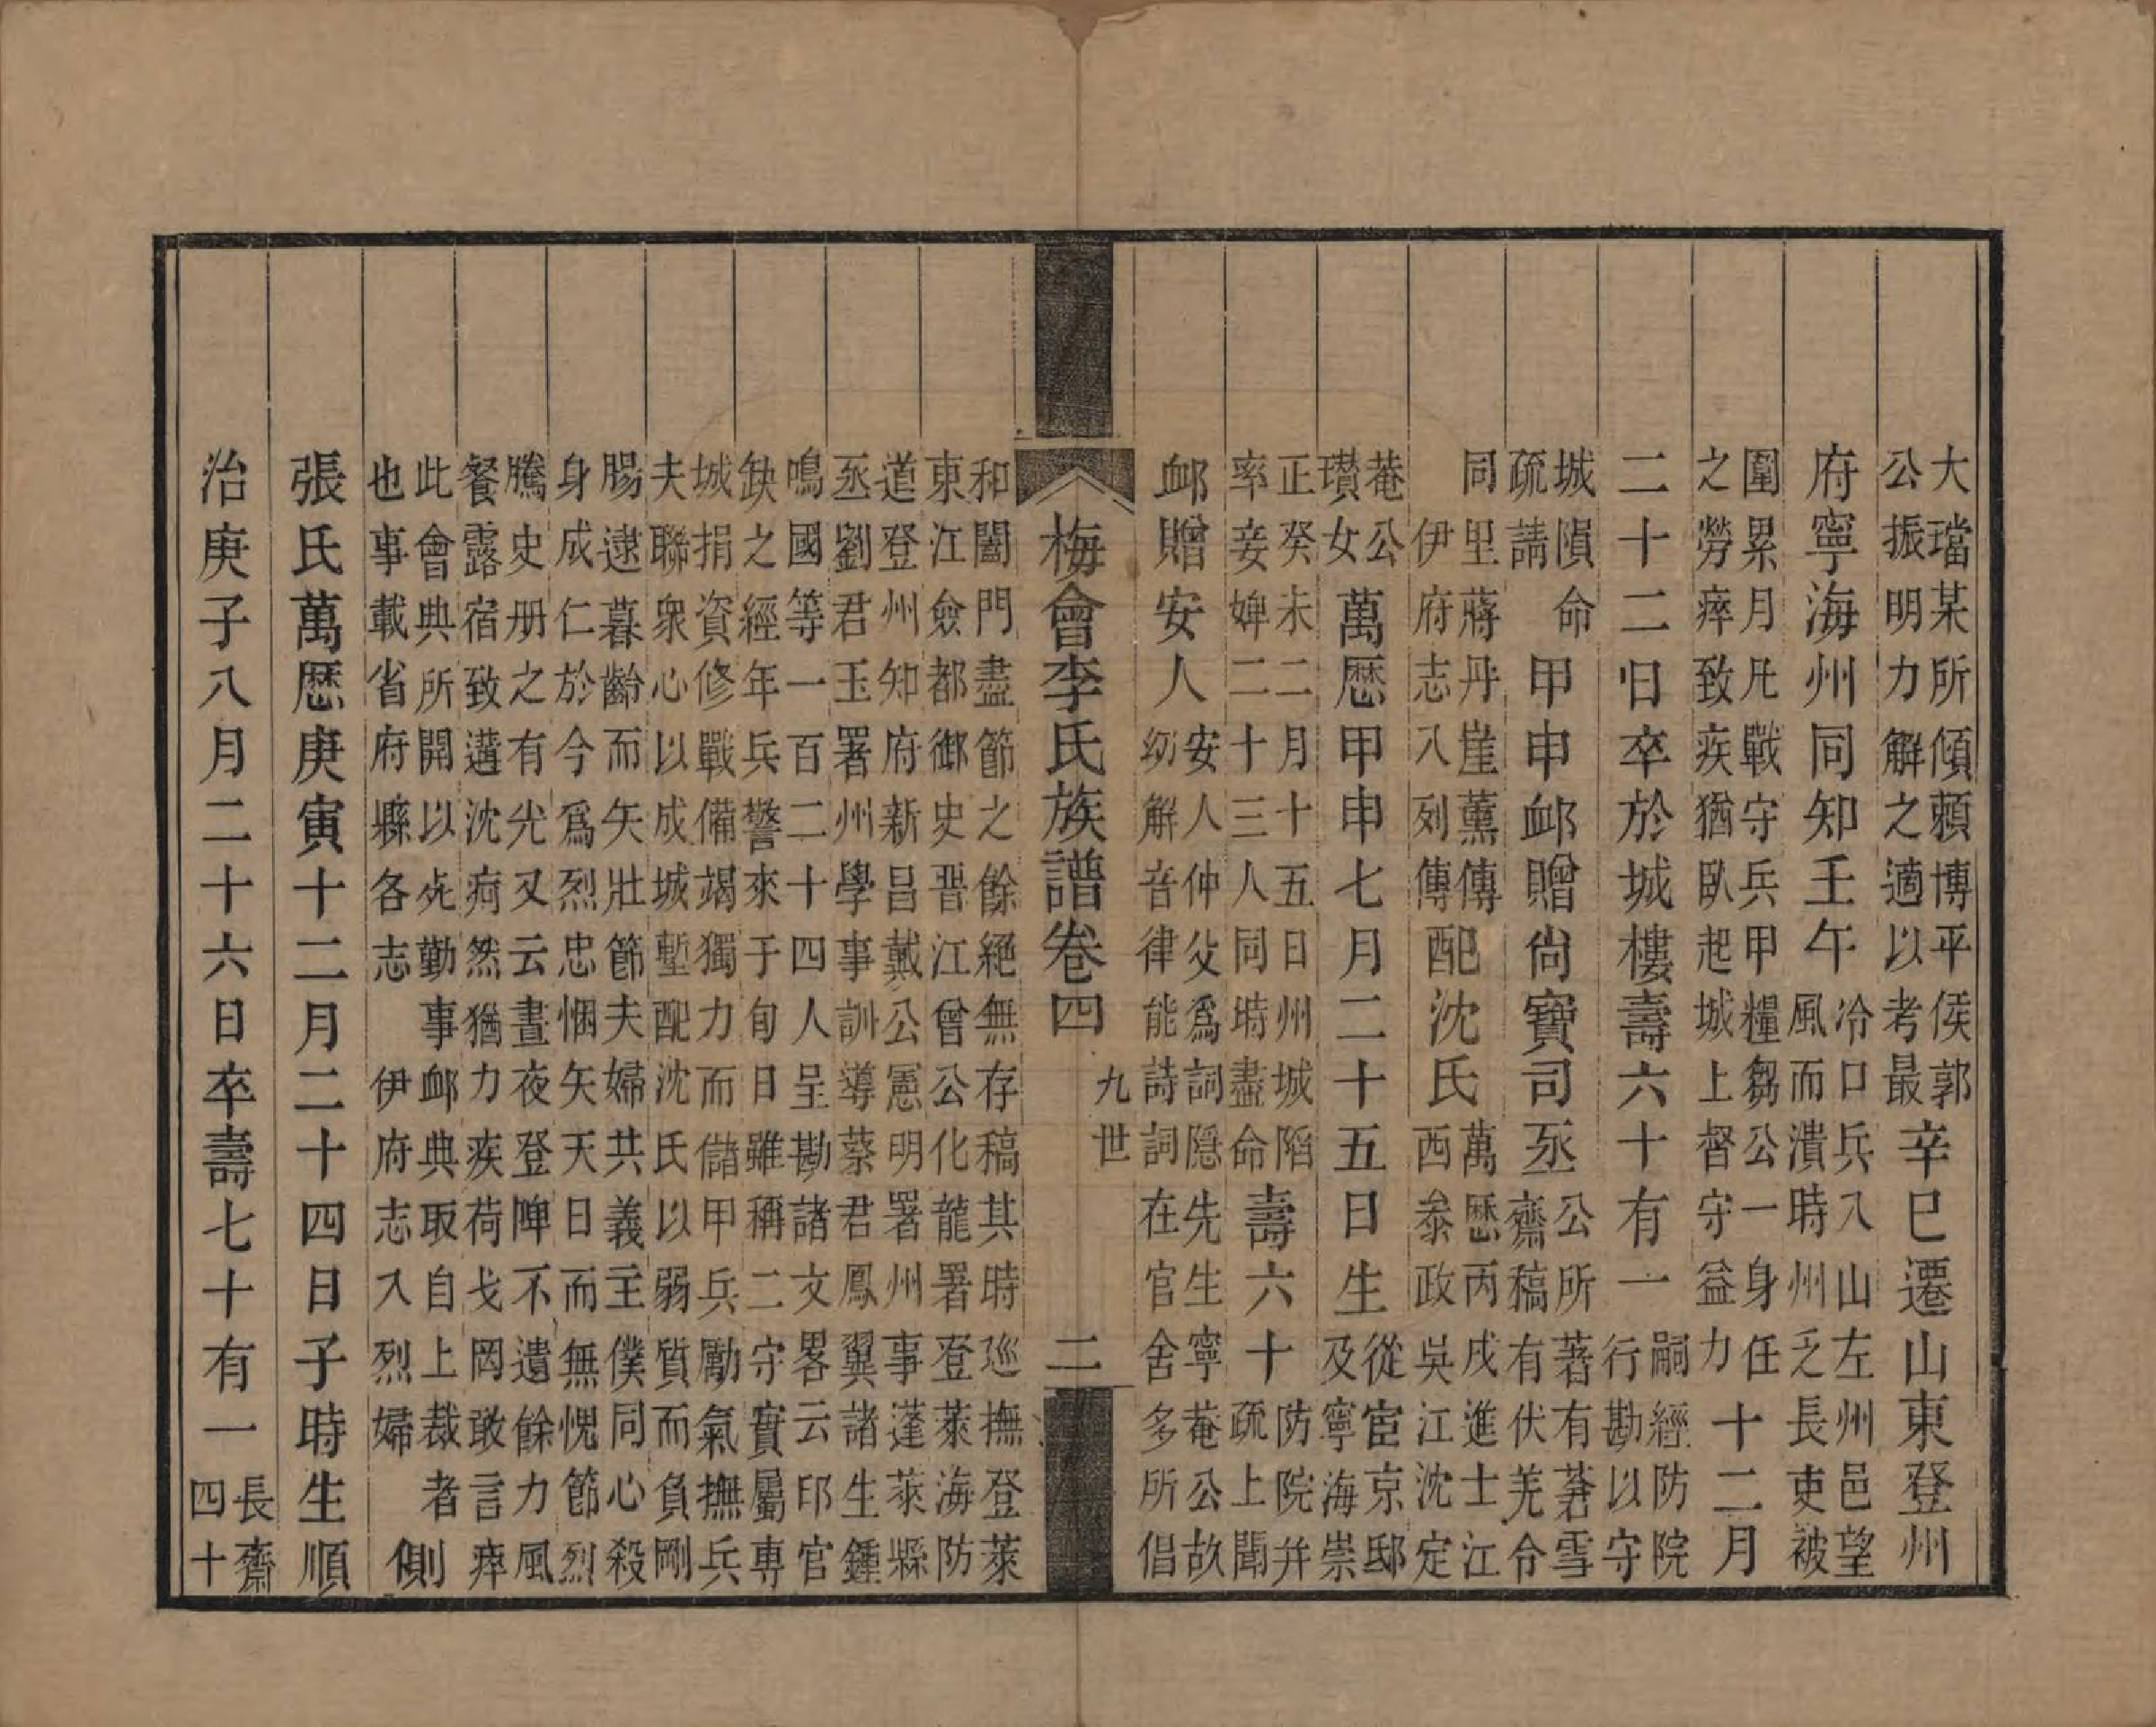 大璫某所傾賴博平侯郭
公振明力解之適以考最
辛巳遷山東登州
府寧海州同知壬午
冷口兵入山左州邑望
風而潰時州乏長吏被
圍累月凡戰守兵甲糧芻公一身任
之勞瘁致疾猶臥起城上督守益力
十二月
二十二日卒於城樓壽六十有一
嗣經防院
行勘以守
城隕命
疏請
甲申䘏贈尚寶司丞
公所著有莙雪
齋稿有伏羌令
同里蔣丹崖薰傳
伊府志入列傳
配沈氏
萬歷丙戌進士江
西叅政吳江沈定
菴公
瓚女
萬歷甲申七月二十五日生
從宦京邸
及寧海崇
正癸未二月十五日州城陷
率妾婢二十三人同時盡命
壽六十
防院并
疏上聞
䘏贈安人
安人仲父爲詞隱先生寧菴公故
幼解音律能詩詞在官舍多所倡
梅會李氏族譜卷四
九世
二
和闔門盡節之餘絕無存稿其時巡撫登萊
東江僉都御史晋江曾公化龍署登萊海防
道登州知府新昌戴公憲明署州事蓬萊縣
丞劉君玉署州學事訓導蔡君鳳翼諸生鍾
鳴國等一百二十四人呈勘諸文畧云邱官
缺之經年兵警來于旬日雖稱二守實屬專
城捐資修戰備竭獨力而儲甲兵勵氣撫兵
夫聯衆心以成城塹配沈氏以弱質而負剛
腸逮暮齡而矢壯節夫婦共義主僕同心殺
身成仁於今爲烈忠悃矢天日而無愧節烈
騰史册之有光又云晝夜登陴不遺餘力風
餐露宿致遘沈疴然猶力疾荷戈罔敢言瘁
此會典所開以死勤事䘏典取自上裁者
也事載省府縣各志伊府志入烈婦
側
張氏萬歷庚寅十二月二十四日子時生順
治庚子八月二十六日卒壽七十有一
長齋
四十